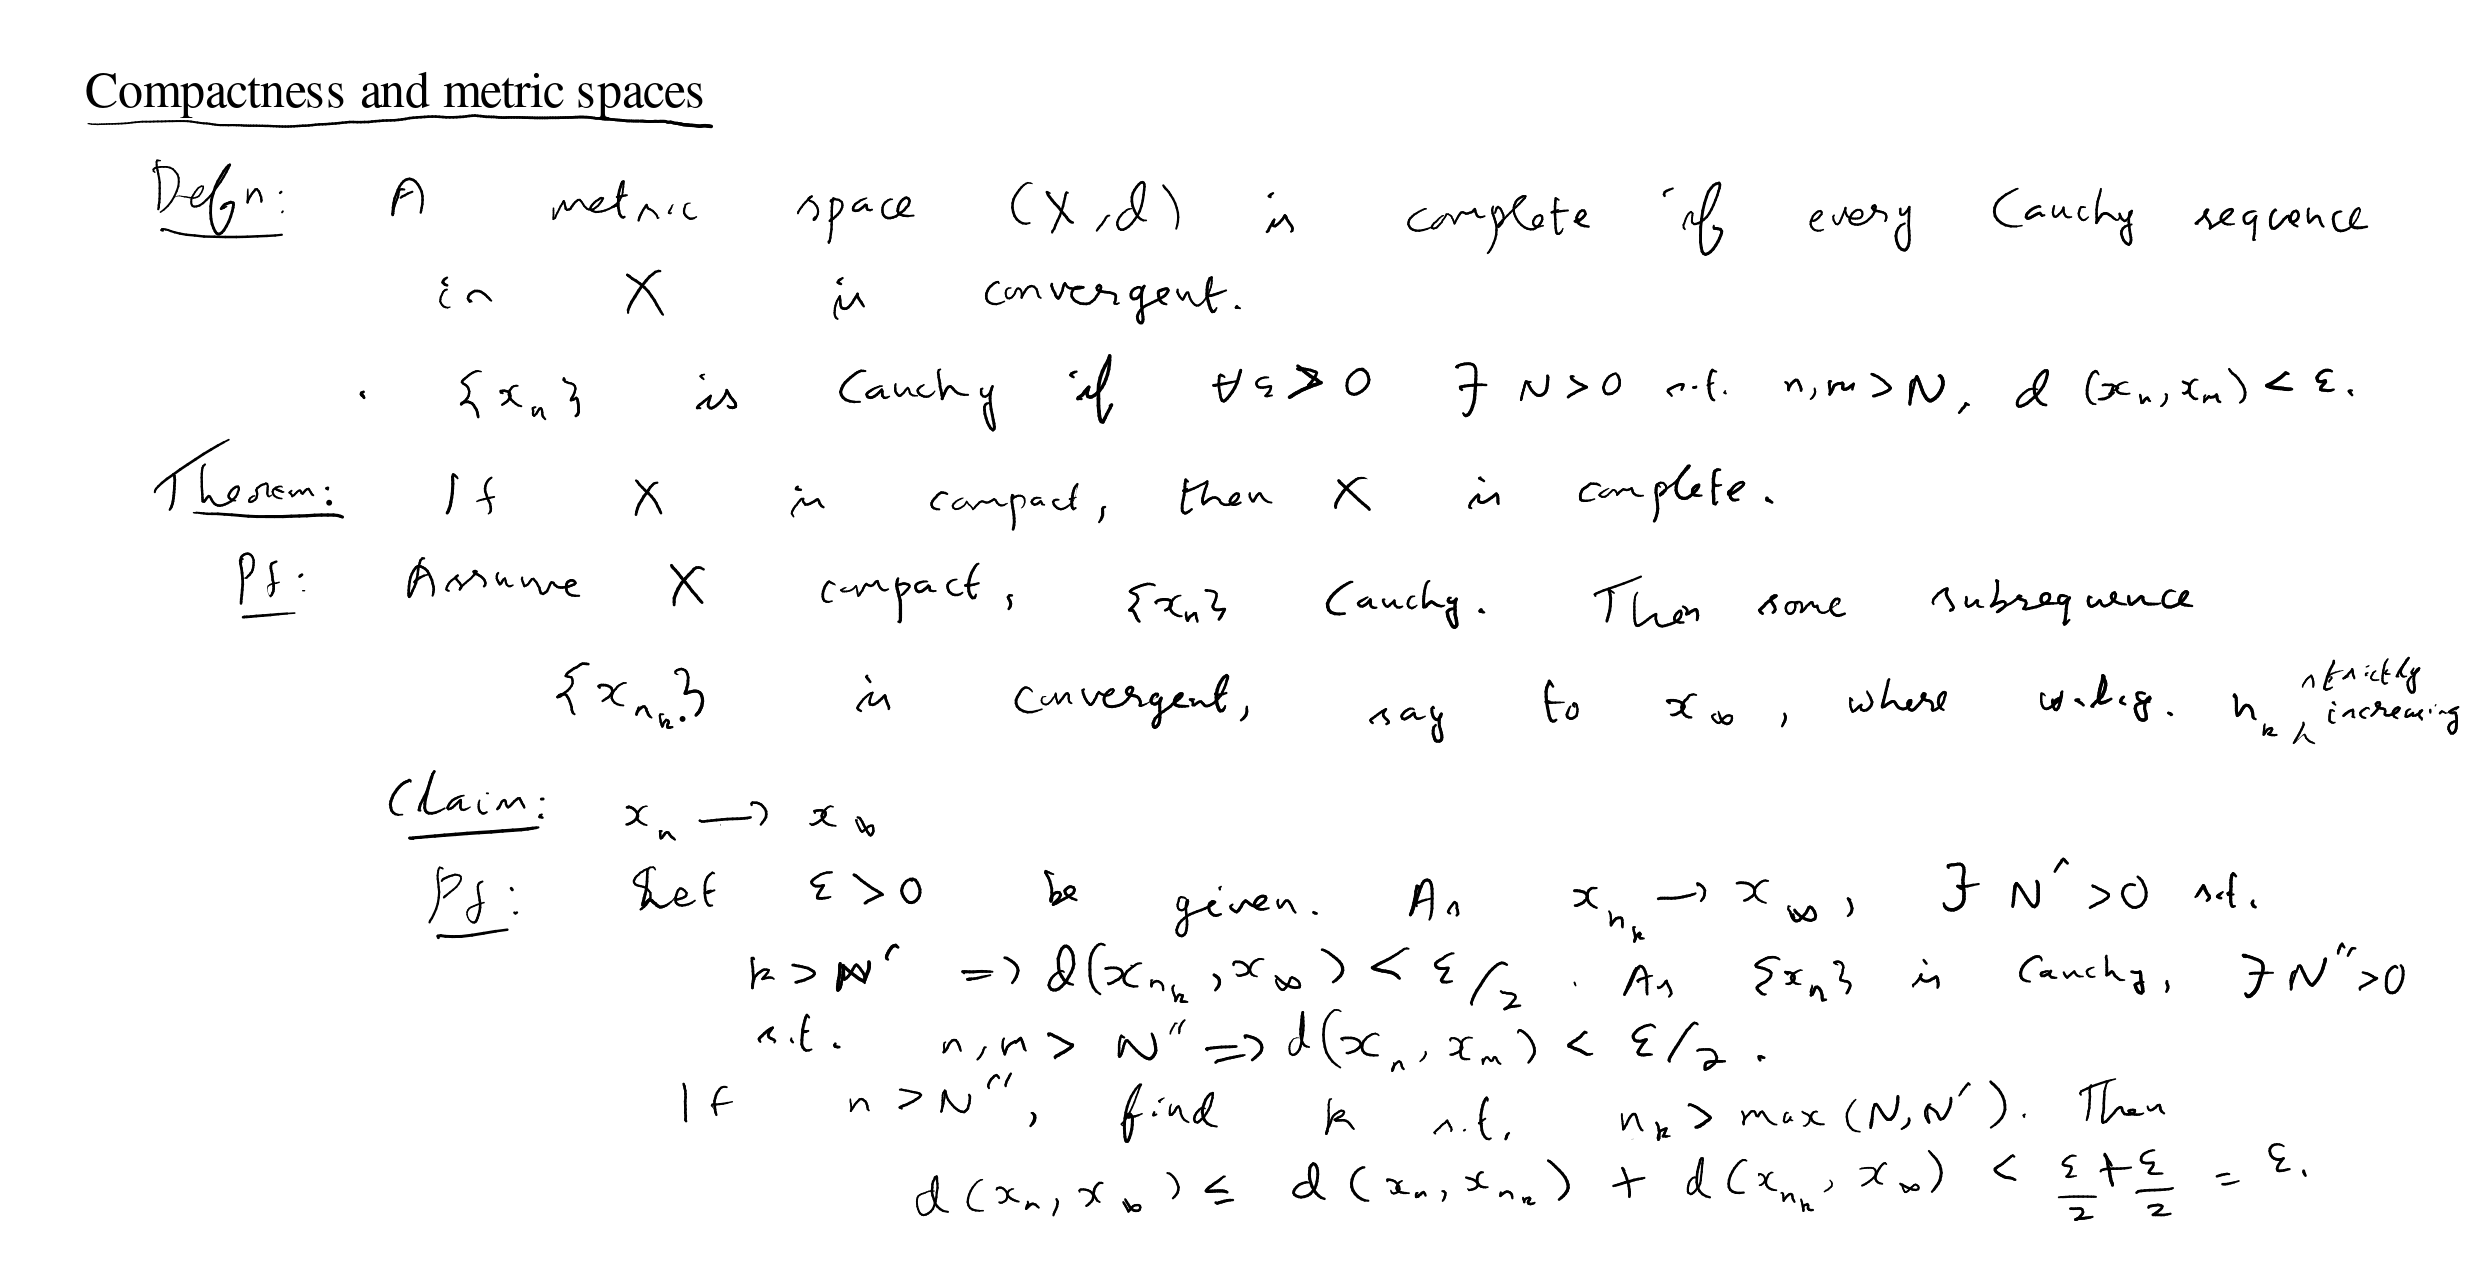 Compactness and metric spaces
Defn: A metric space (X,d) is complete if every Cauchy sequence
in X is convergent.
· {xₙ} is Cauchy if ∀ε>0 ∃ N>0 s.t. n,m>N, d(xₙ,xₘ)<ε.
Theorem: If X is compact, then X is complete.
Pf: Assume X compact, {xₙ} Cauchy. Then some subsequence
{x_{n_k}} is convergent, say to x_∞, where w.l.g. n_k strictly increasing
Claim: xₙ → x_∞
Pf: Let ε>0 be given. As x_{n_k} → x_∞, ∃ N'>0 s.t.
k>N' => d(x_{n_k},x_∞)<ε/2. As {xₙ} is Cauchy, ∃ N''>0
s.t. n,m > N'' => d(xₙ,xₘ) < ε/2.
If n>N'', find k s.t. n_k > max(N,N'). Then
d(xₙ,x_∞) ≤ d(xₙ,x_{n_k}) + d(x_{n_k},x_∞) < ε/2 + ε/2 = ε.